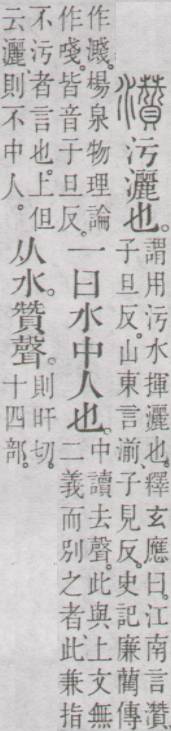 灒污灑也。
謂用污水揮灑也。釋玄應曰。江南言灒、
子旦反。山東言湔、子見反。史記廉藺傳
作濺。楊泉物理論
作。皆音于旦反。
一曰水中人也。
中讀去聲。此與上文無
二義而別之者、此兼指
不污者言也。上但
云灑則不中人。
从水。贊聲。
則旰切。
十四部。